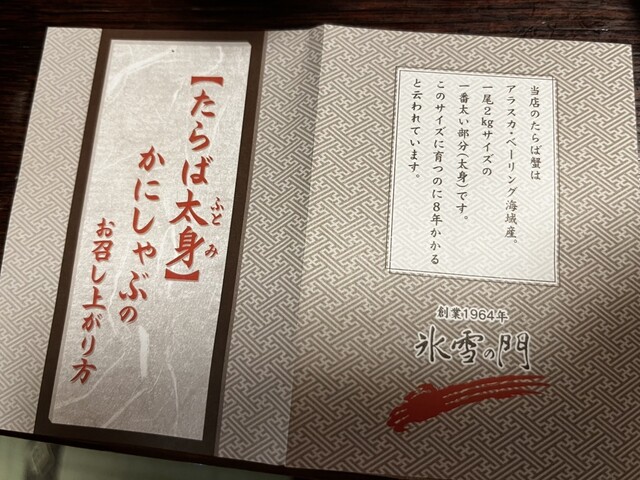 当店のたらば蟹は
アラスカ・ベーリング海域産。
一尾2kgサイズの
一番太い部分(太身)です。
このサイズに育つのに8年かかる
と云われています。
創業1964年
氷雪の門
【たらば太身】
ふとみ
かにしゃぶの
お召し上がり方